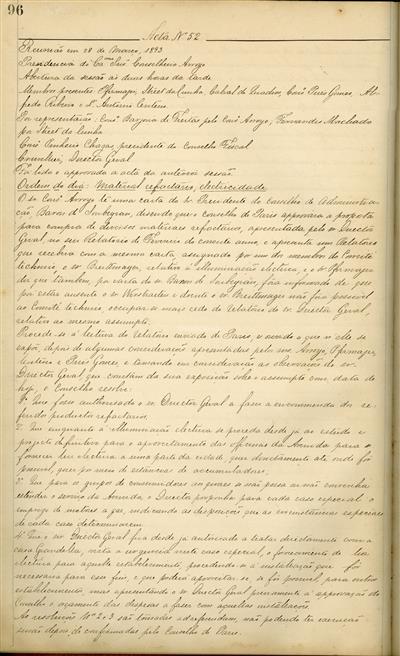 96
Acta Nº 52
Reunião em 28 de Março, 1893
Presidencia do Exmo Snr Conselheiro Arroyo
Abertura da sessão ás duas horas da tarde
Membros presentes: Pfizmayer, Street da Cunha, Cabral de Quadros, Carlos Pires Gomes, Al-
fredo Ribeiro e Dr Antonio Centeno
Por representação: Cons. Barjona de Freitas pelo Cons. Arroyo, Fernandes Machado
por Street da Cunha
Cons. Pinheiro Chagas presidente do Conselho Fiscal
Director Geral
Foi lida e approvada a acta da anterior sessão
Ordem do dia: Material refractario, electricidade
O sr Cons. Arroyo lê uma carta do sr Presidente do Comité de Administra-
ção, Baron de dizendo que o conselho de Paris approvara a proposta
para compra de diversos materiaes refractarios, apresentada pelo sr Director
Geral, no seu Relatorio de Fevereiro do corrente anno, e apresenta um Relatorio
que recebeu com a mesma carta, assignado por um dos membros do Comité
technico, o sr relativo á illuminação electrica, e o sr Pfizmayer
diz que tambem, por carta do sr Baron de fôra informado de que
por estar ausente o sr e doente o sr não fôra possivel
ao Comité technico occupar-se mais cedo do Relatorio do sr Director Geral,
relativo ao mesmo assumpto.
Procede-se á leitura do Relatorio enviado de Paris, e ouvido o que n'elle se
expõe, depois de algumas considerações apresentadas pelos snrs Arroyo, Pfizmayer,
Centeno e Pires Gomes, e tomando em consideração as observações do sr
Director Geral, que constam da sua exposição sobre o assumpto com data de
hoje, o Conselho resolve:
1º Que fosse authorisado o sr Director Geral a fazer a encommenda dos re-
feridos productos refractarios.
2º Que emquanto á illuminação electrica se proceda desde já ao estudo e
projecto definitivo para o aproveitamento das officinas da Avenida para o
fornecer luz electrica a uma parte da cidade, quer directamente até onde fôr
possivel, quer por meio de estancias de accumuladores.
3º Que para os grupos de consumidores aos quaes se não possa ou não convenha
estender o serviço da Avenida, o Director proponha para cada caso especial o
emprego de motores a gaz, indicando as disposições que as circumstancias especiaes
de cada caso determinarem.
4º Que o sr Director Geral fica desde já autorisado a tratar directamente com a
casa Grandella, vista a urgencia neste caso especial, o fornecimento de luz
electrica para aquelle estabelecimento, procedendo-se á installação que fôr
necessaria para esse fim, e que poderá aproveitar-se, se fôr possivel, para outros
estabelecimentos, mas apresentando o sr Director Geral previamente á approvação do
Conselho o orçamento das despezas a fazer com aquellas installações.
As resoluções Nos 2 e 3 são tomadas ad referendum, não podendo ter execução
senão depois de confirmadas pelo Conselho de Paris.